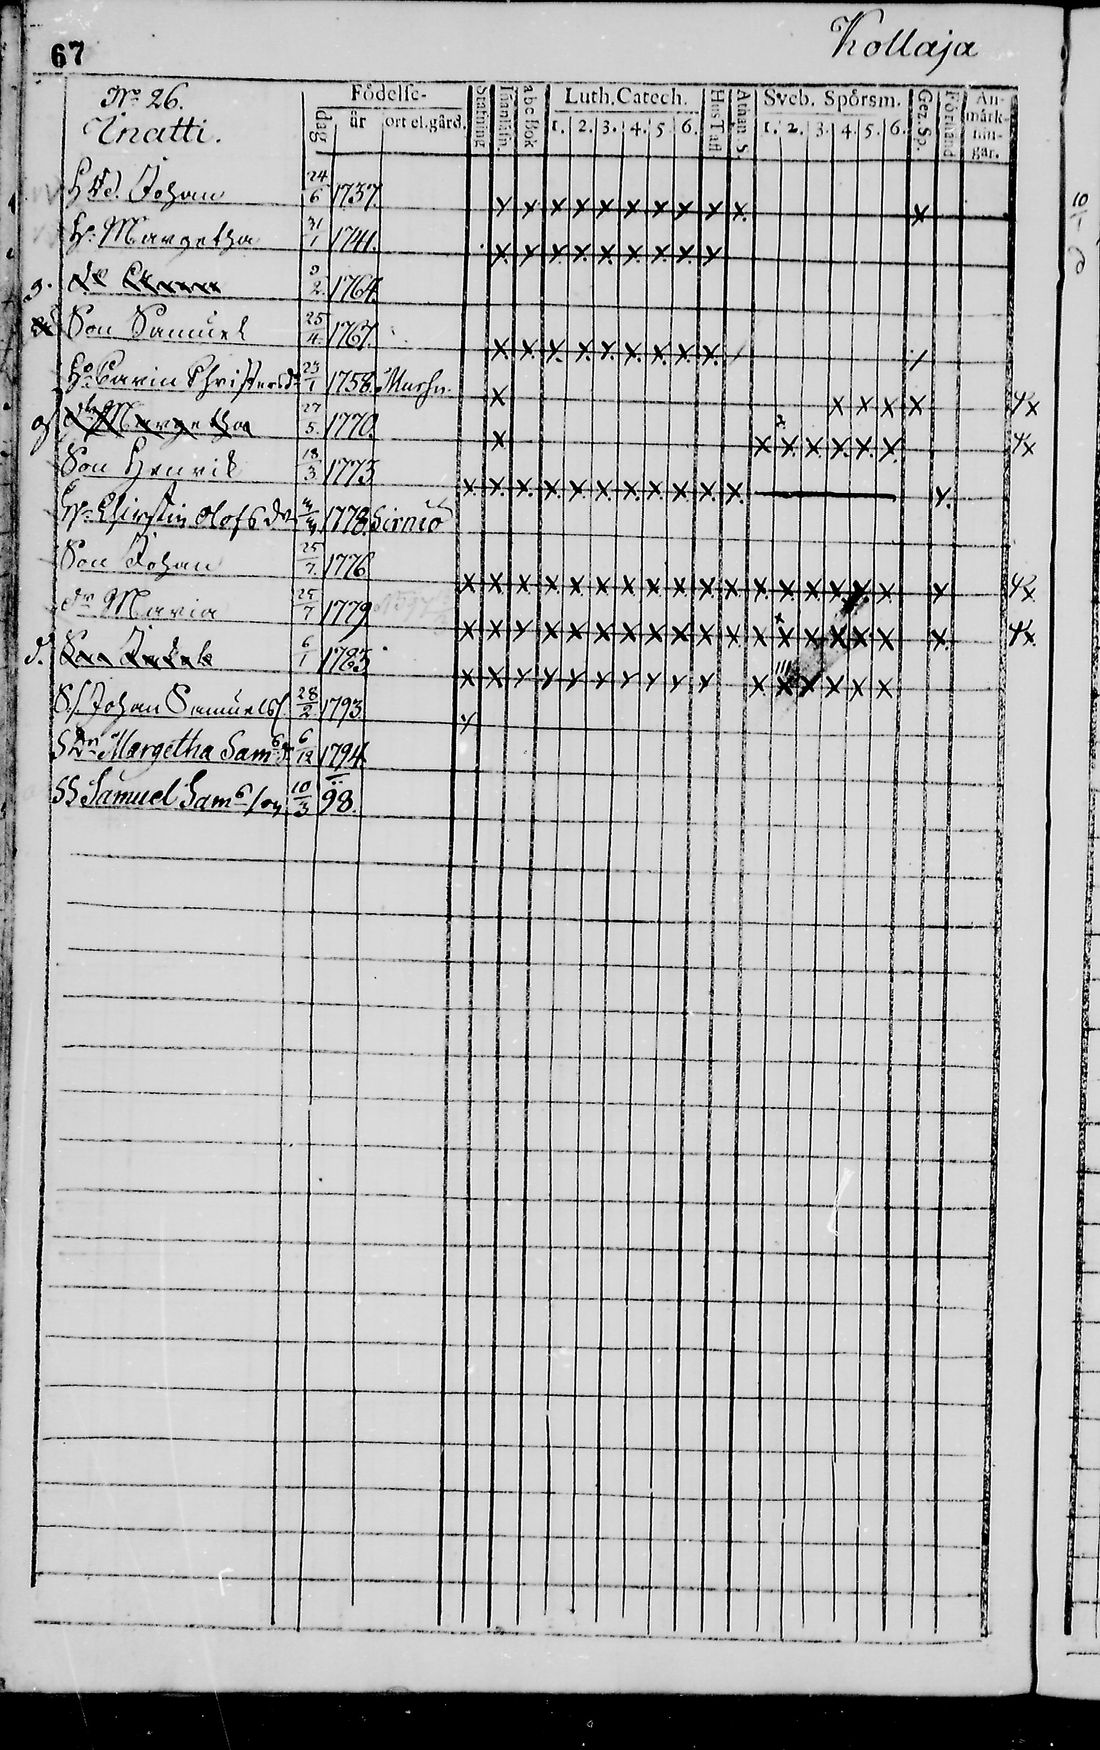 67
Kollaja
No 26.
Födelse-
dag
år
ort el. gård.
Stafning
Innanläs.
abc Bok
Luth. Catech.
1. 2. 3. 4. 5. 6.
Hus Tafl
Athan. S.
Sveb. Spörsm.
1. 2. 3. 4. 5. 6.
Gez. Sp.
Förstånd
Anmärkningar.
Johan 24/6 1737 x x x x x x x x x x x
H. Margetha 31/1 1741. x x x x x x x x x
g. 2 1764
Son Samuel 25/4 1767. x x x x x x x x x
Carin Christersdr 23/1 1758. x x x x x 4x
g Dr Margetha 27/5. 1770. x x x x x x x 4x
Son Henrik 18/3 1773 x x x x x x x x x x x x
Olofs dr 1778.
Son Johan 25/7. 1776 x x x x x x x x x x x x x x x x x x 4x
Dr Maria 25/7 1779 x x x x x x x x x x x x x x x x x x 4x
d. Son 6/1 1783 x x x x x x x x x x x x x x x x
Johan Samuels 28/2 1793 x
Margetha Sam 6/12 1794
Samuel Sam son 10/3 98.